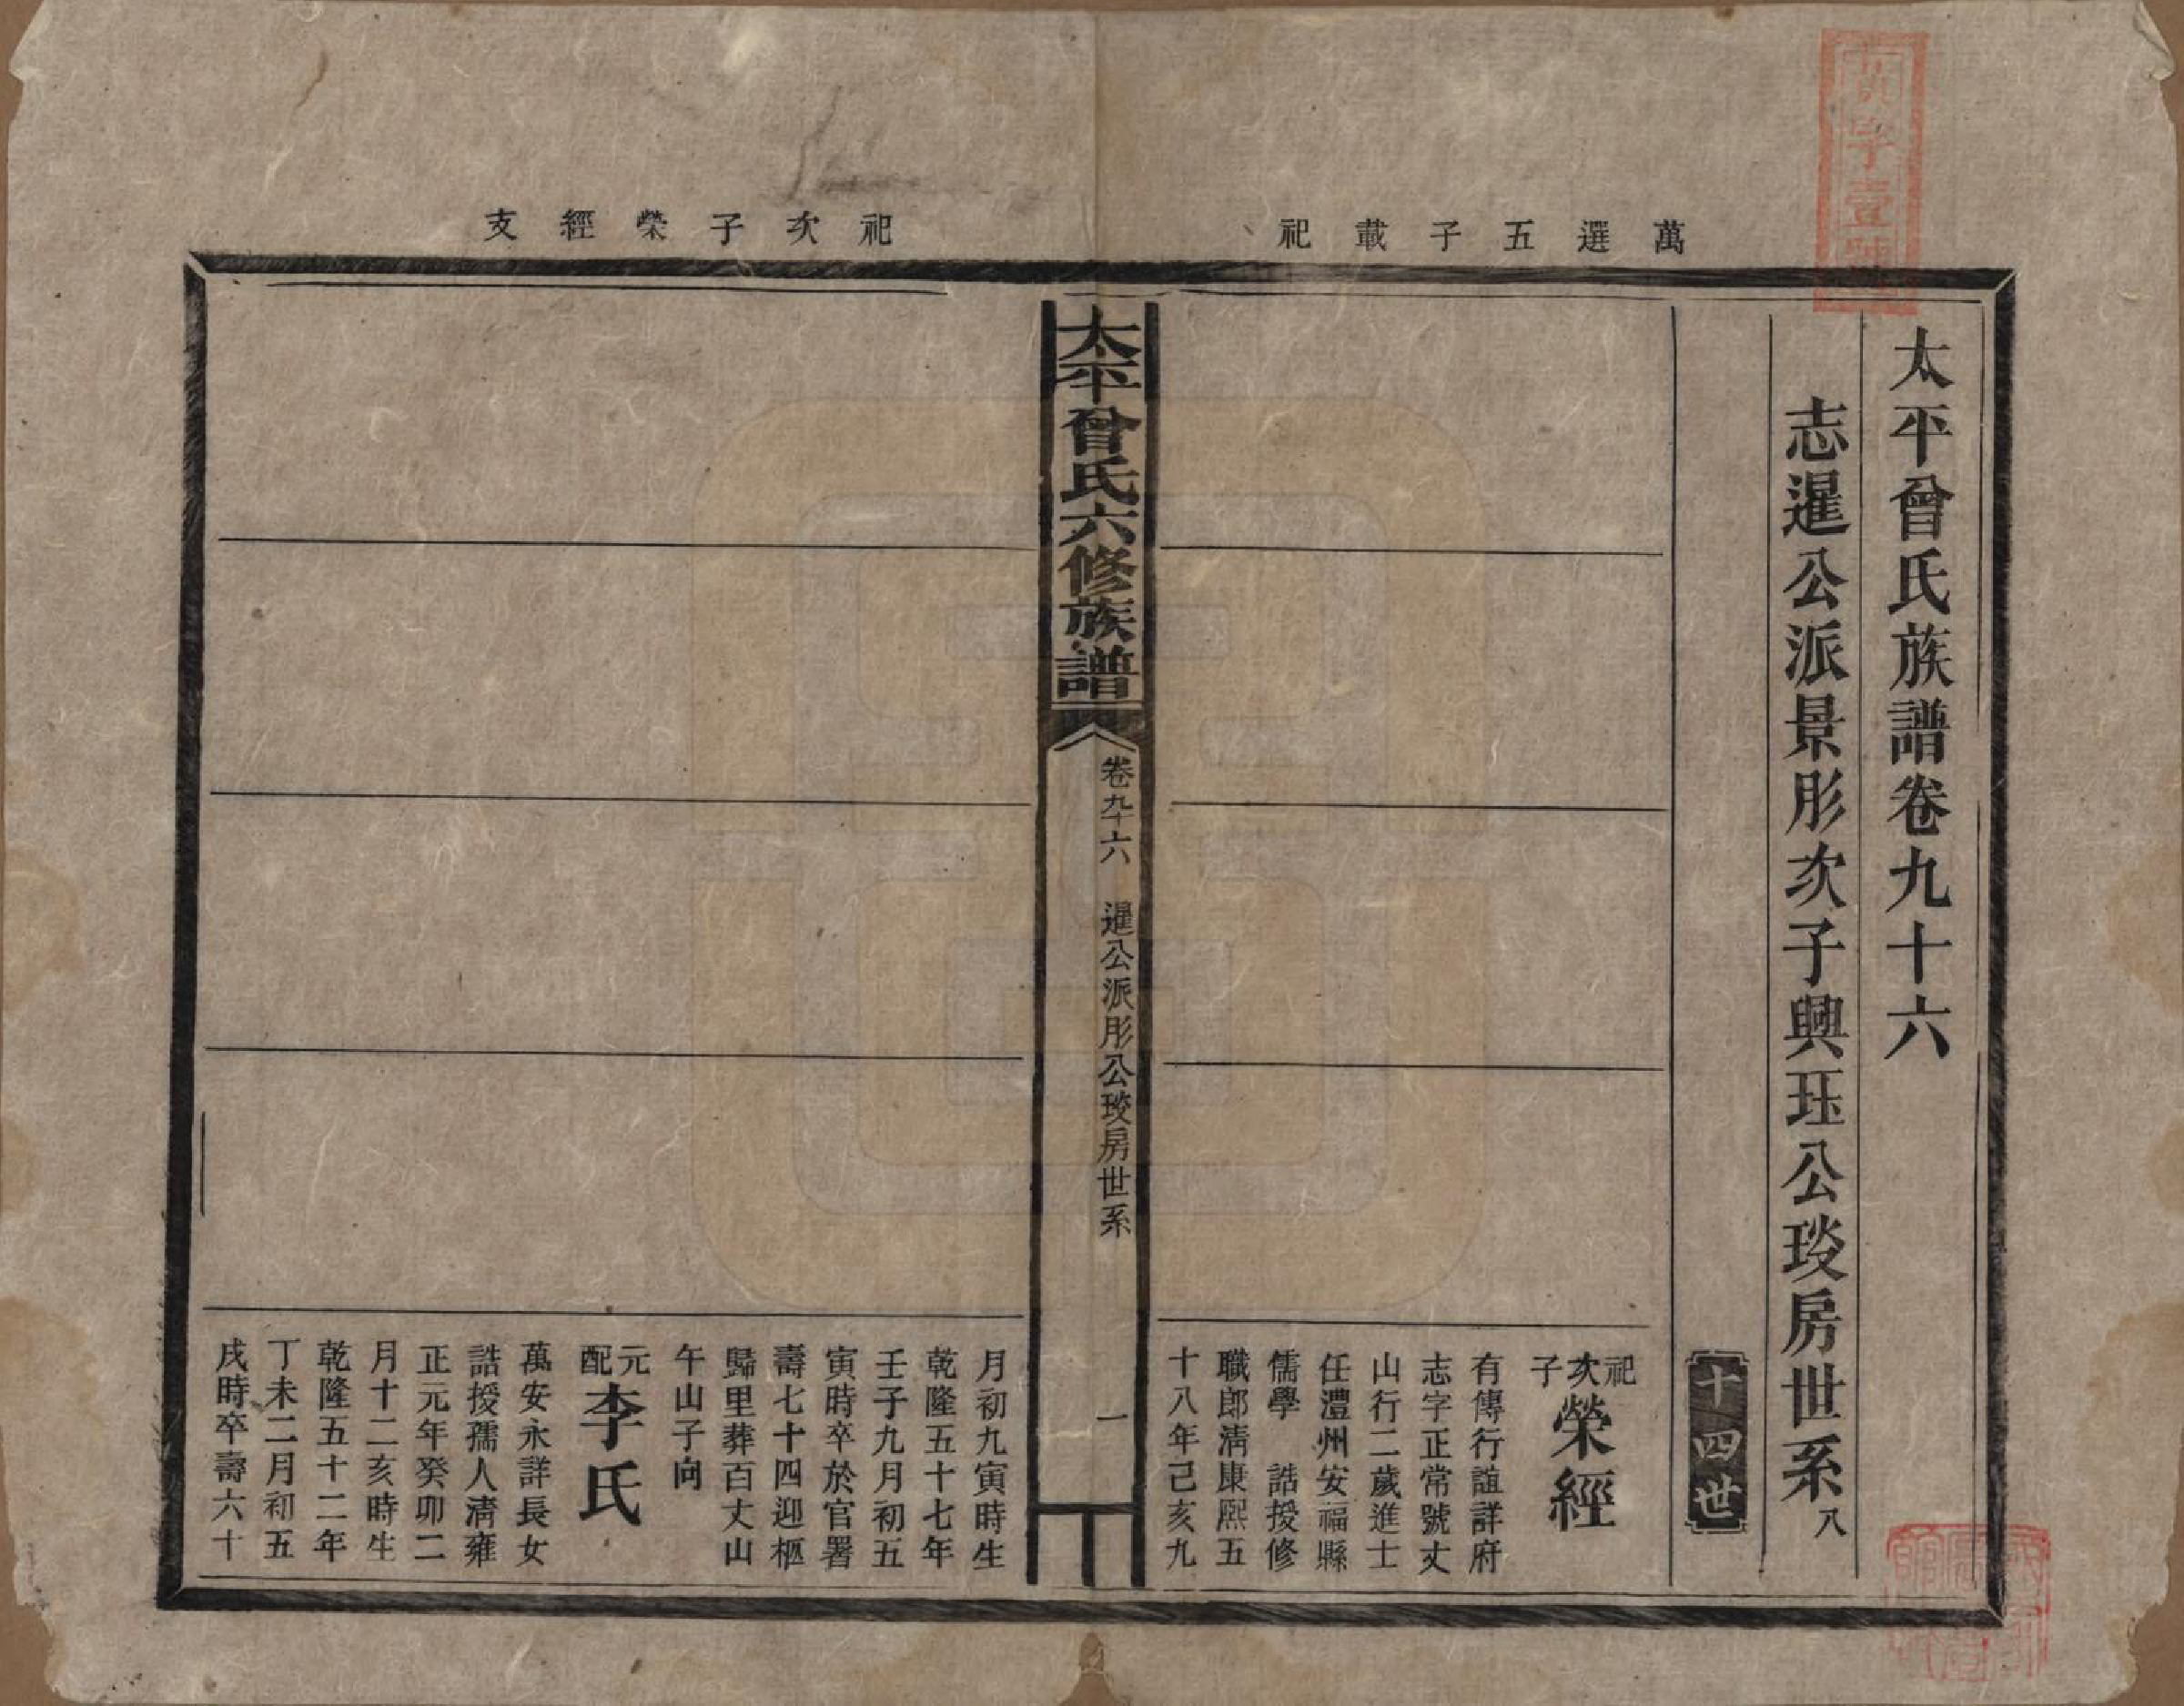 萬選五子載祀
太平曾氏族譜卷九十六
志暹公派景彤次子興珏公琰房世系 八
十四世
祀次子榮經
有傳行誼詳府
志字正常號丈
山行二歲進士
任澧州安福縣
儒學　誥授修
職郎清康熙五
十八年己亥九
太平曾氏六修族譜
卷九十六　暹公派彤公琰房世系　一
祀次子榮經支
月初九寅時生
乾隆五十七年
壬子九月初五
寅時卒於官署
壽七十四迎柩
歸里葬百丈山
午山子向
元配李氏
萬安永詳長女
誥授孺人清雍
正元年癸卯二
月十二亥時生
乾隆五十二年
丁未二月初五
戌時卒壽六十
字壹號